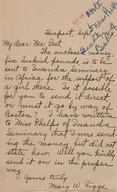 Fairport. Sept
My dear Mr. Best
The enclosed money
five Turkish pounds, is to be
sent to Inanda Seminary
in Africa for the support of
a girl there. Is it possible
for you to send it direct,
or must it go by way of
Boston? I have written
to Miss Phelps of Inanda
Seminary that I was send-
ing the money but did not
state how. Will you kindly
send it on in the proper
way.
Yours truly,
Mary W. Riggs